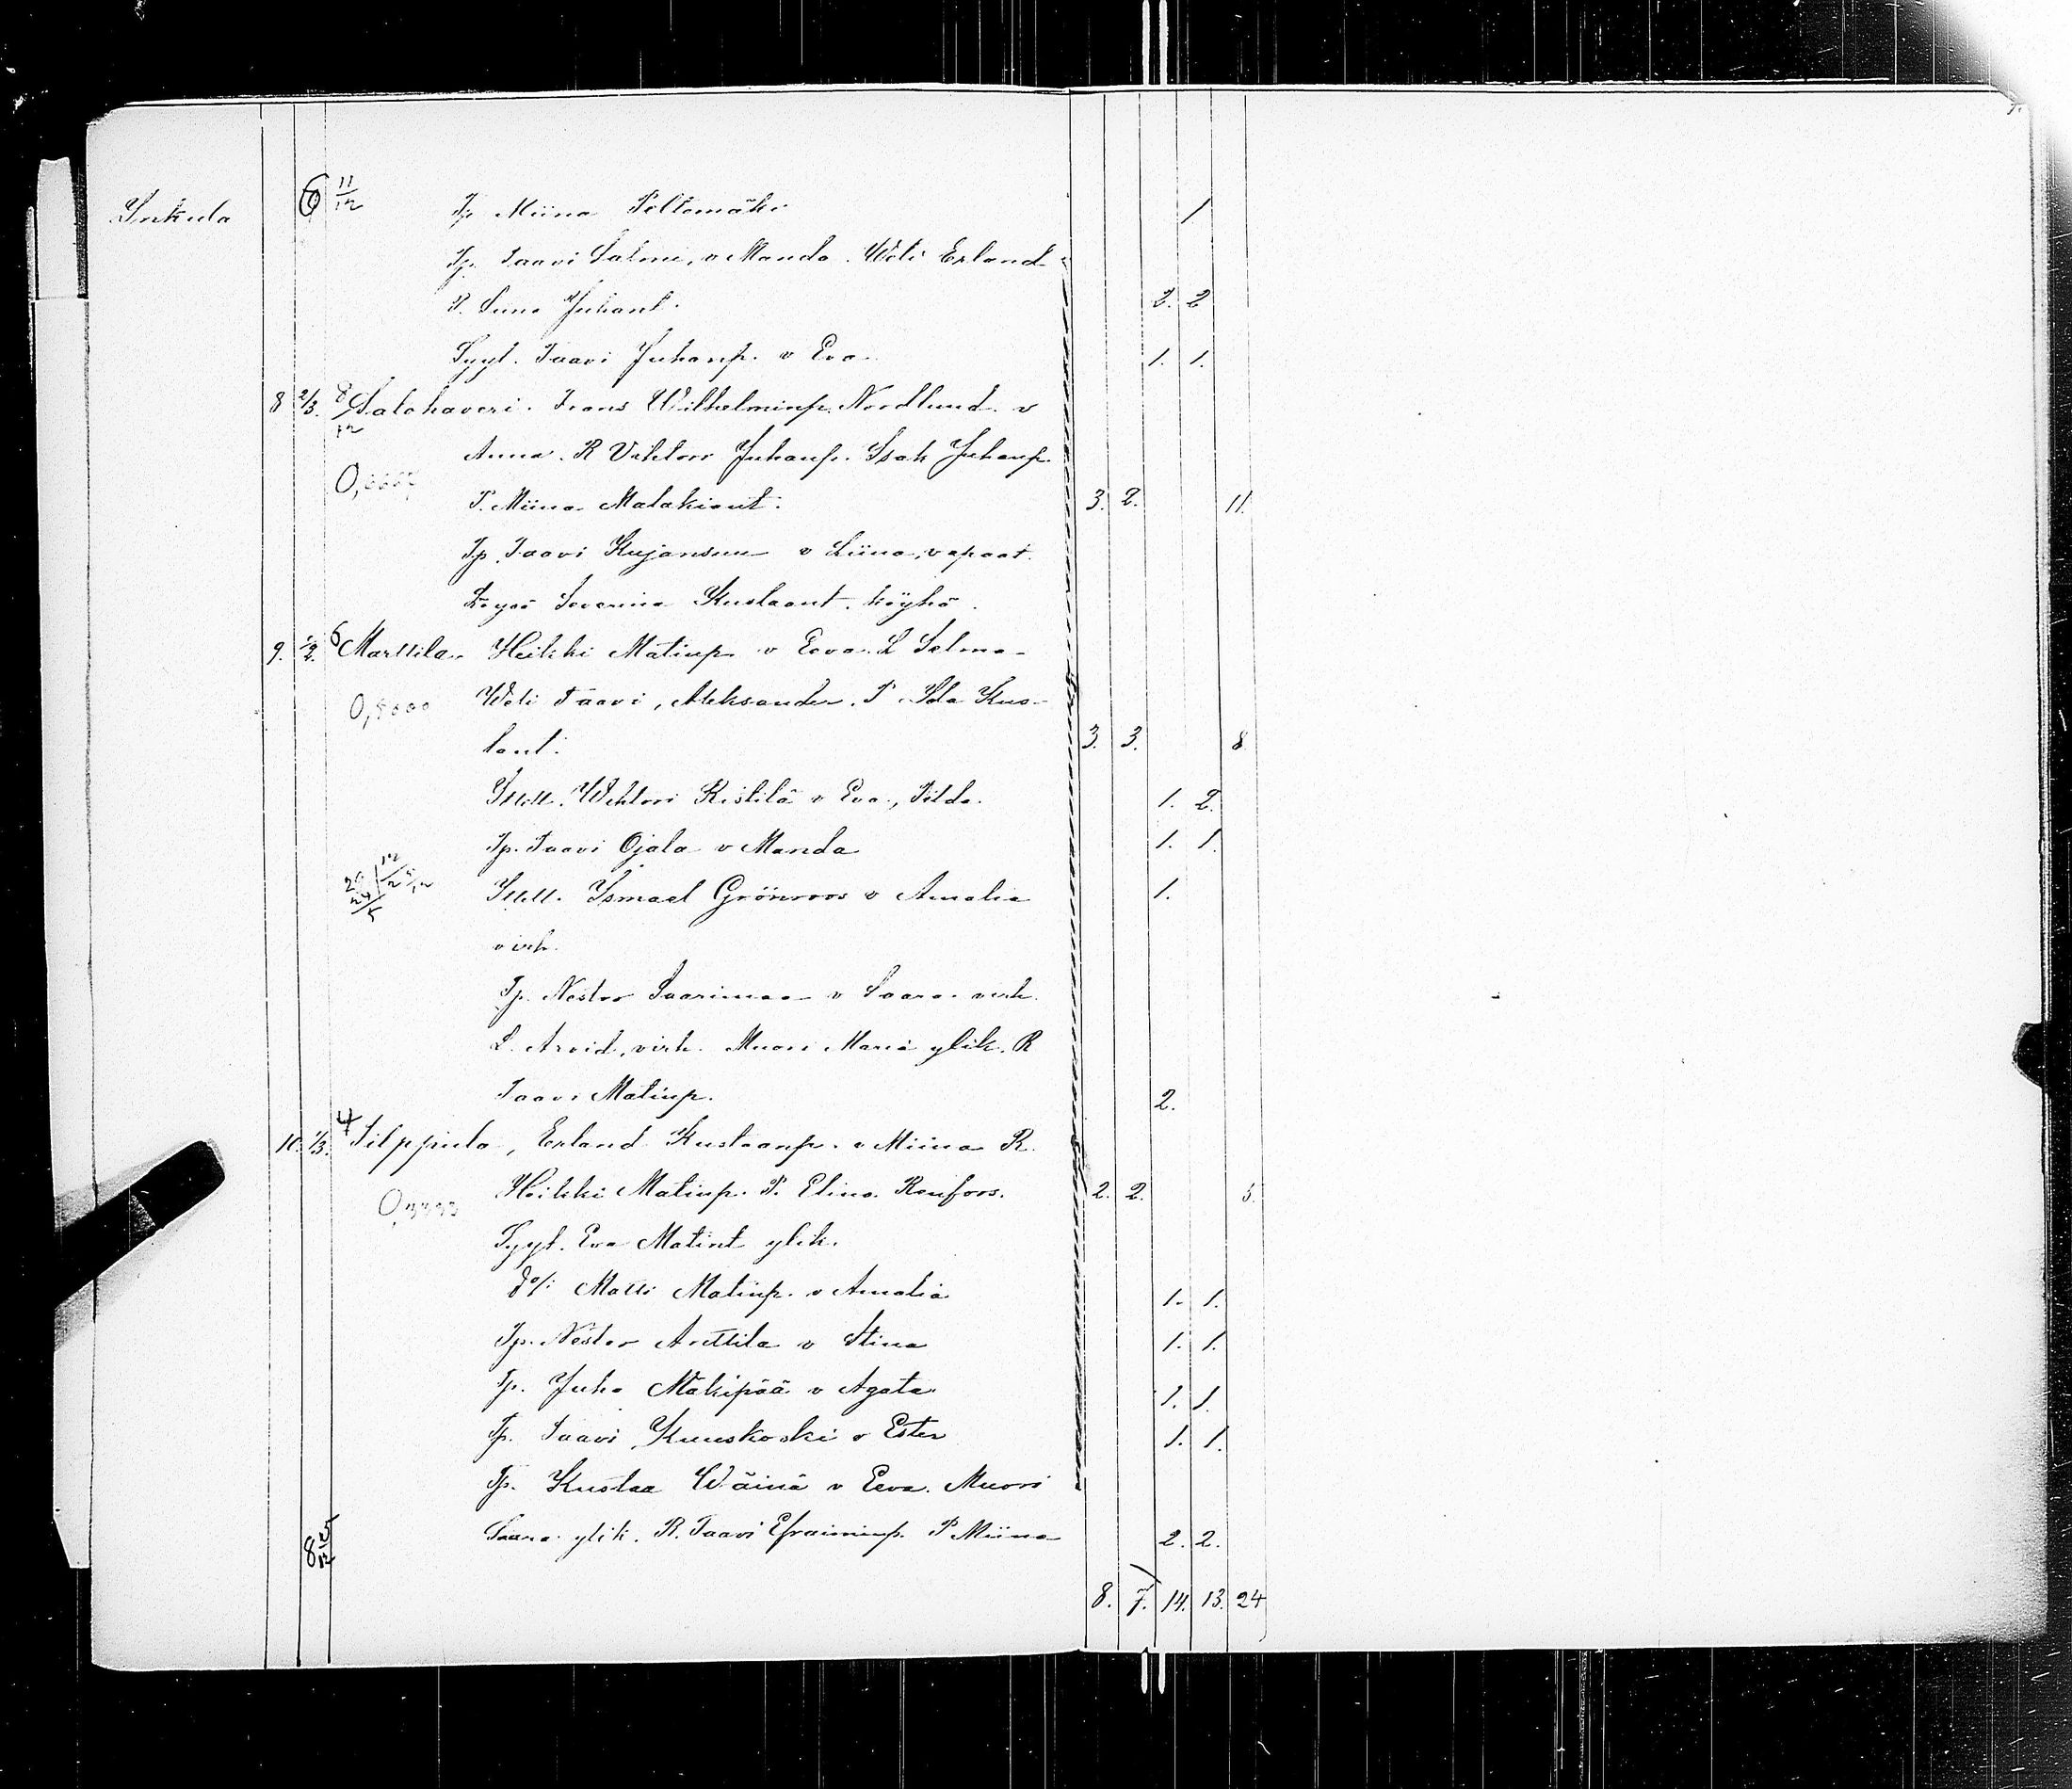 Inkula 6 11/12 Tp. Miina Peltomäki 1
Tp. Taavi Salmi, v Manda. Weli Erland
P. Suna Juhant. 2. 2
Syyt. Taavi Juhanp. v Eva 1. 1.
8 2/3. 8/12 Salohaveri. Frans Wilhelminp. Nordlund. v
Anna. R Vihtori Juhanp. Isak Juhanp.
0,6667 P. Miina Malakiant. 3. 2. 11.
Tp. Taavi Kujansuu v Liina, vapaat.
Severina Kustaant. köyhä.
9. 1/2. 6 Marttila. Heikki Matinp. v Eeva. L Selma
0,5000 Weli Taavi, Aleksander. P. Ida Kus-
tant. 3. 3. 8
Ittell. Wihtori Ristilä v Eva, Tilda. 1. 2.
Tp. Taavi Ojala v Manda 1. 1.
Ittell. Ismael Grönroos v Amalia 1.
virh.
Tp. Nestor Saarimaa v Saara virh.
L. Arvid, virh. Muori Maria ylik. R
Taavi Matinp. 2.
10. 1/3. 4 Silppula, Erland Kustaanp. v Miina R.
0,3333 Heikki Matinp. P. Elina Renfors. 2. 2. 5.
Syyt. Eva Matint ylik.
do/: Matti Matinp. v Amalia 1. 1.
Tp. Nestor Anttila v Stina 1. 1.
Tp. Juho Mäkipää v Agata 1. 1.
Tp. Taavi Kuuskoski v Ester 1. 1.
Tp. Kustaa Wäinä v Eeva. Muori
8 5/12 Saara ylik. R. Taavi Efraiminp. P Miina 2. 2.
8. 7. 14. 13. 24